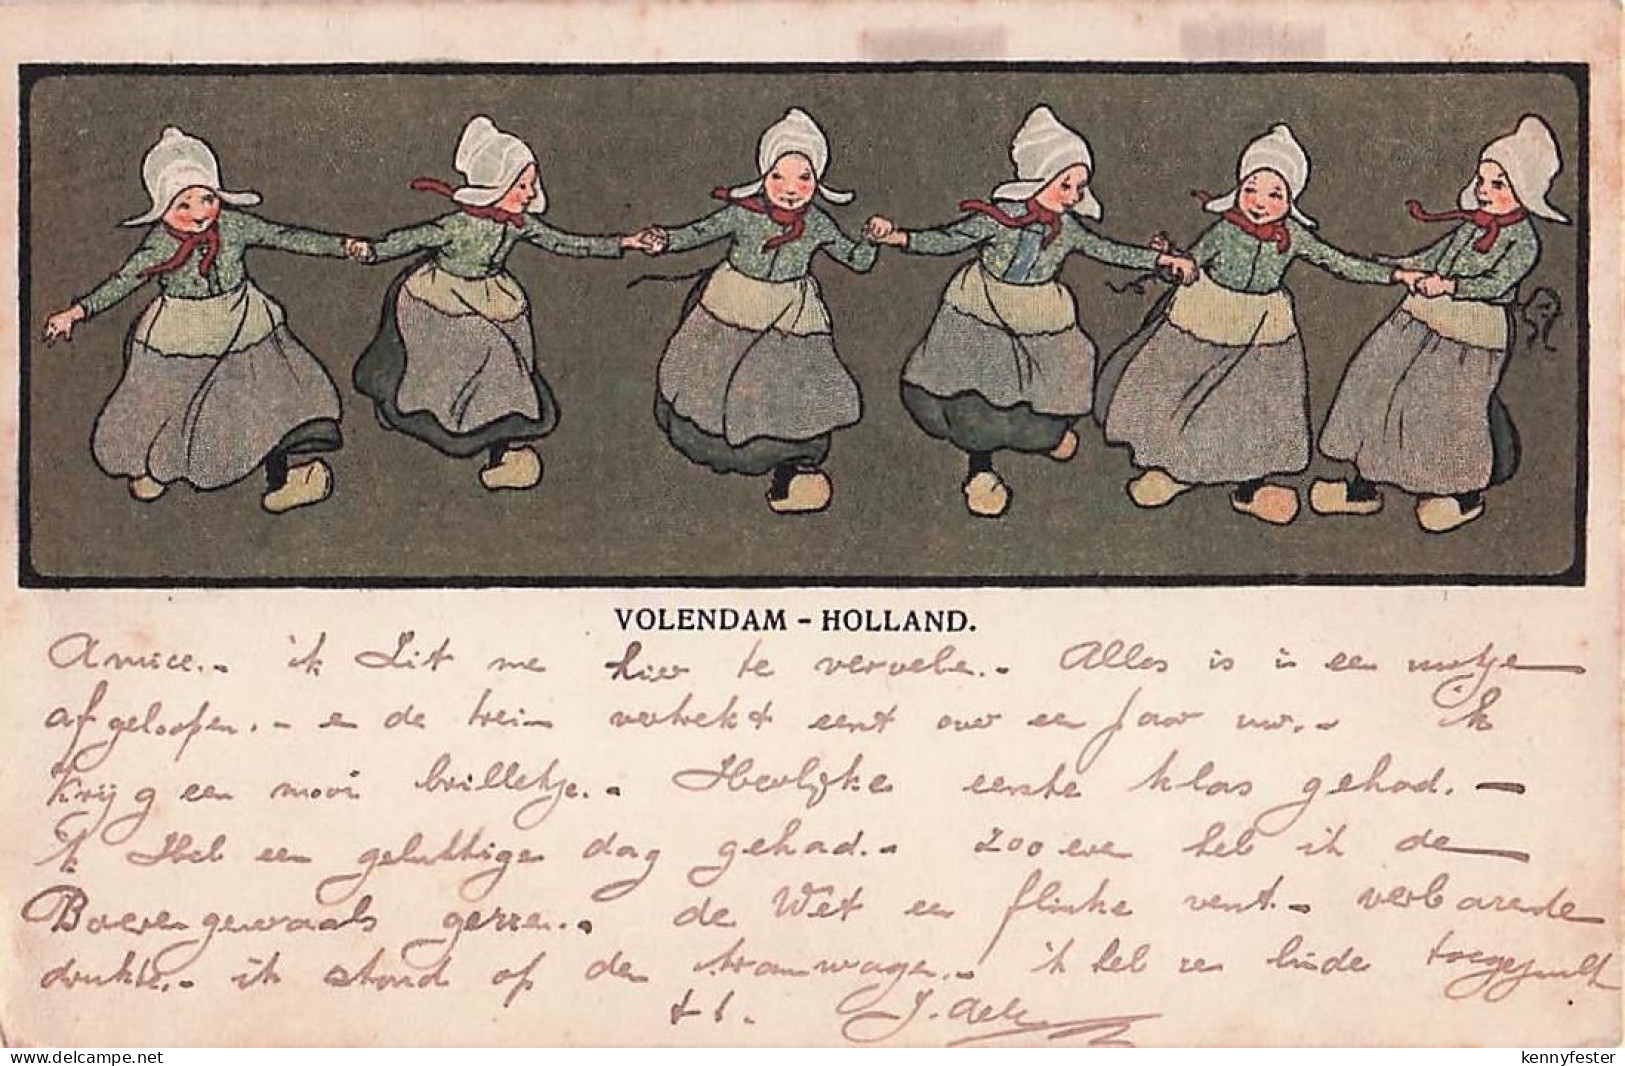 VOLENDAM - HOLLAND.
Amice.- ik zit me hier te vervelen.- Alles is in een
afgeloopen.- en de trein vertrekt eerst over een
Krijg een mooi brilletje.- Heerlijke eerste klas gehad.-
Ik Heb een gelukkige dag gehad.- zoo even heb ik de
Boeren gezien.- de Wet een flinke vent.-
drukte.- ik stond op de tramwagen.- ik heb ze beide
kennyfester
www.delcampe.net